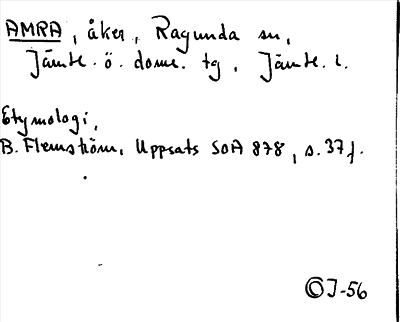 AMRA, åker, Ragunda sn,
Jämtl. ö. doms. tg, Jämtl. l.
Etymologi,
B. Flemström, Uppsats SOA 878, s. 37 f.
© J-56